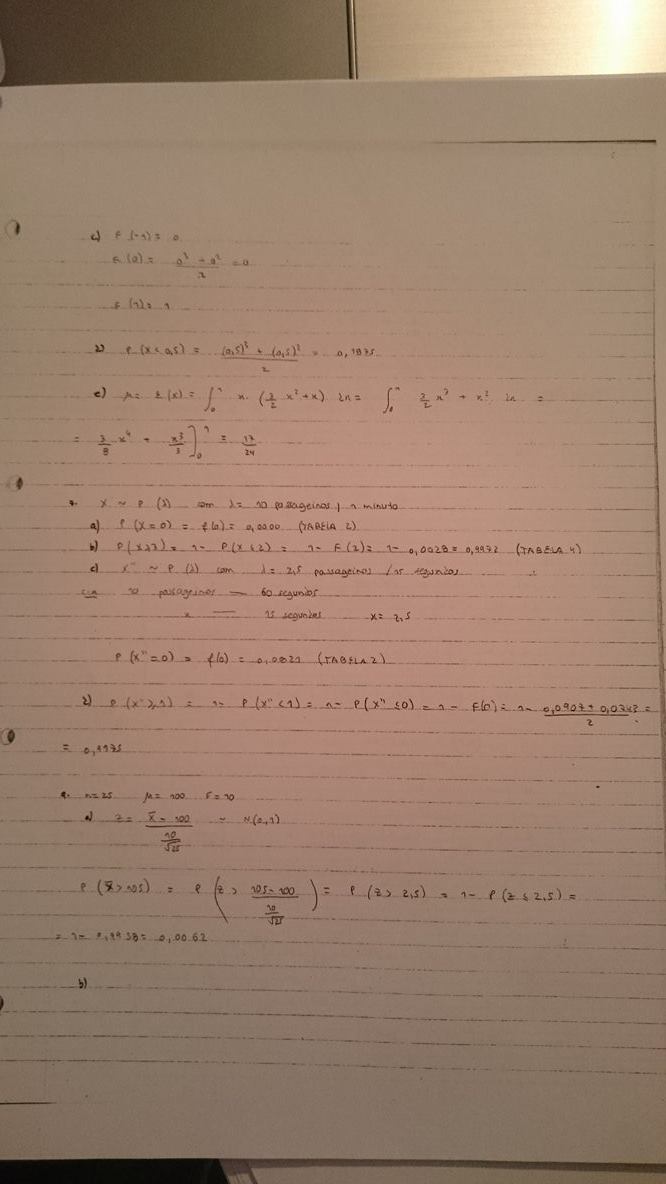 c) F(-1) = 0
F(0) = (0³ + 0²)/2 = 0
F(1) = 1
d) P(X < 0,5) = ((0,5)³ + (0,5)²)/2 = 0,1875
e) μ = E(X) = ∫₀¹ x · (3/2 x² + x) dx = ∫₀¹ 3/2 x³ + x² dx =
= 3/8 x⁴ + x³/3 ]₀¹ = 17/24
7. X ~ P(λ) com λ = 10 passageiros / 1 minuto
a) P(X=0) = f(0) = 0,0000 (TABELA 2)
b) P(X≥3) = 1 - P(X<2) = 1 - F(2) = 1 - 0,0028 = 0,9972 (TABELA 4)
c) X" ~ P(λ) com λ = 2,5 passageiros / 15 segundos
10 passageiros — 60 segundos
x — 15 segundos x = 2,5
P(X"=0) = f(0) = 0,0821 (TABELA 2)
d) P(X"≥1) = 1 - P(X"<1) = 1 - P(X"≤0) = 1 - F(0) = 1 - (0,0907 + 0,0743)/2 =
= 0,9175
n=25 μ=100 σ=10
a) Z = (X̄ - 100)/(10/√25) ~ N(0,1)
P(X̄ > 105) = P(Z > (105-100)/(10/√25)) = P(Z > 2,5) = 1 - P(Z ≤ 2,5) =
= 1 - 0,9938 = 0,0062
b)